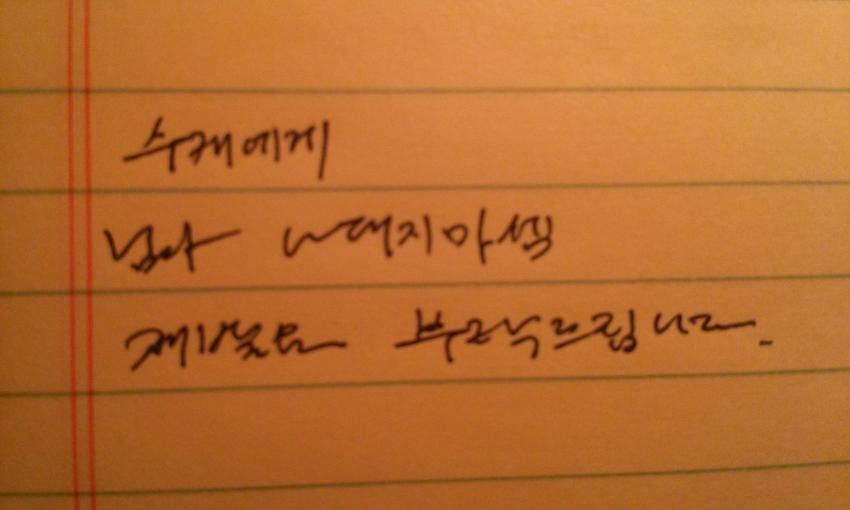 수재에게
남아 나대지마셈
제발요 부탁드립니다.